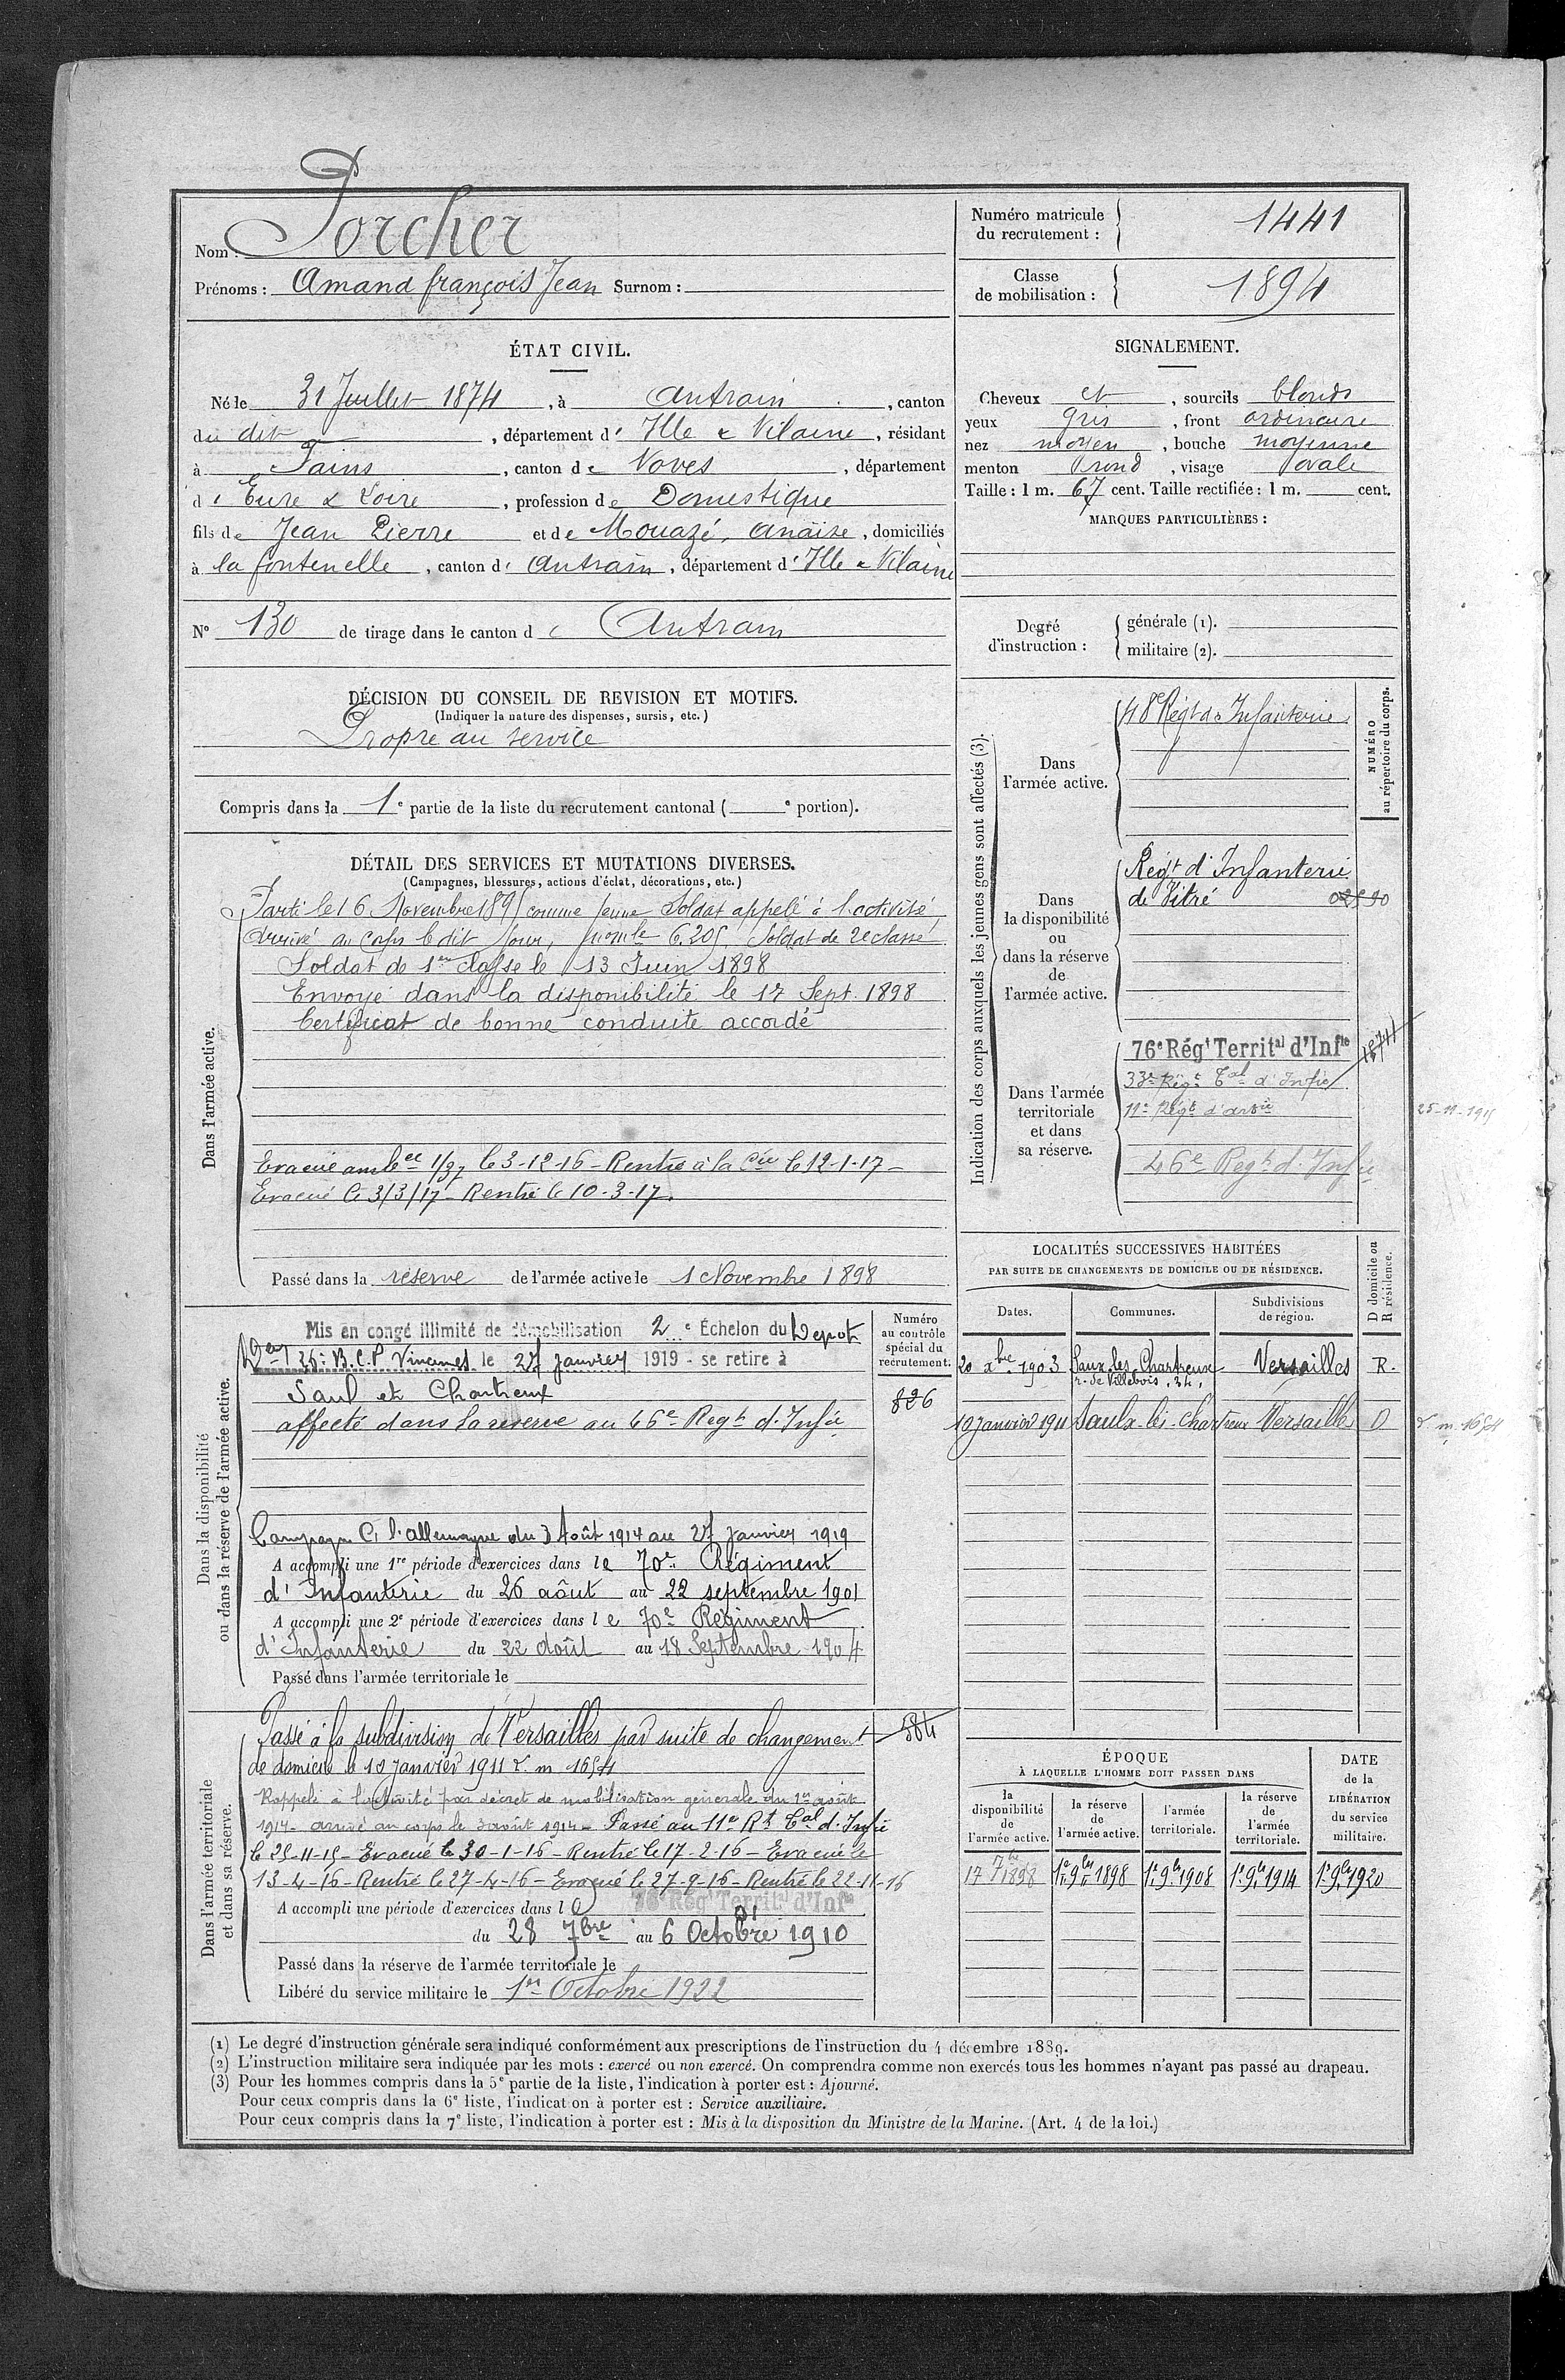 Nom : Porcher
Prénoms : Amand françois Jean Surnom :
Numéro matricule du recrutement : 1441
Classe de mobilisation : 1894
ÉTAT CIVIL.
Né le 31 Juillet 1874, à Antrain, canton
du dit, département d' Ille & Vilaine, résidant
à Fains, canton de Voves, département
d' Eure & Loire, profession de Domestique
fils de Jean Pierre et de Mouazé, Anaïse, domiciliés
à la fontenelle, canton d' Antrain, département d' Ille & Vilaine
N° 130 de tirage dans le canton d' Antrain
SIGNALEMENT.
Cheveux et, sourcils blonds
yeux gris, front ordinaire
nez moyen, bouche moyenne
menton rond, visage ovale
Taille : 1 m. 67 cent. Taille rectifiée : 1 m. cent.
MARQUES PARTICULIÈRES :
Degré d'instruction : générale (1).
militaire (2).
DÉCISION DU CONSEIL DE REVISION ET MOTIFS.
(Indiquer la nature des dispenses, sursis, etc.)
Propre au service
Compris dans la 1e partie de la liste du recrutement cantonal ( e portion).
DÉTAIL DES SERVICES ET MUTATIONS DIVERSES.
(Campagnes, blessures, actions d'éclat, décorations, etc.)
Dans l'armée active.
Parti le 16 Novembre 1895 comme jeune Soldat appelé à l'activité
Arrivé au Corps le dit jour, mle 6.205. Soldat de 2e classe
Soldat de 1re classe le 13 Juin 1898
Envoyé dans la disponibilité le 17 Sept. 1898
Certificat de bonne conduite accordé
Evacué ambce 1/37 le 3-12-16 - Rentré à la Cie le 12-1-17 -
Evacué le 3/3/17 - Rentré le 10-3-17.
Passé dans la réserve de l'armée active le 1 Novembre 1898
Indication des corps auxquels les jeunes gens sont affectés (3).
NUMÉRO au répertoire du corps.
Dans l'armée active.
48e Régt d'Infanterie
Dans la disponibilité ou dans la réserve de l'armée active.
Régt d'Infanterie
de Vitré
Dans l'armée territoriale et dans sa réserve.
76e Régt Territal d'Infie
33e Régt Tal d'Infie
11e Régt d'
25-11-1915
46e Regt d'Infie
LOCALITÉS SUCCESSIVES HABITÉES
PAR SUITE DE CHANGEMENTS DE DOMICILE OU DE RÉSIDENCE.
Dates. Communes. Subdivisions de région. D domicile ou R résidence.
20 xbre 1903 Saux les Chartreux r. de Villebois, 34, Versailles R.
10 janvier 1911 Saulx-les-Chartreux Versailles D
r. m. 1654
Dans la disponibilité ou dans la réserve de l'armée active.
Numéro au contrôle spécial du recrutement.
826
Mis en congé illimité de démobilisation 2e Échelon du Depot
26e B.C.P Vincennes le 27 Janvier 1919 - se retire à
Saul et Chartreux
affecté dans la reserve au 46e Regt d'Infie
Campagne C. l'allemagne du 3 Août 1914 au 27 Janvier 1919
A accompli une 1re période d'exercices dans le 70e Régiment
d'Infanterie du 26 aôut au 22 septembre 1901
A accompli une 2e période d'exercices dans le 70e Régiment
d'Infanterie du 22 Août au 18 Septembre 1904
Passé dans l'armée territoriale le
Dans l'armée territoriale et dans sa réserve.
584
Passé à la subdivision de Versailles par suite de changement
de domicile le 10 Janvier 1911 r. m. 1654
Rappelé à l'activité par décret de mobilisation générale du 1er août
1914 - arrivé au corps le 3 août 1914 - Passé au 11e Rt Tal d'Infie
le 25-11-15 - Evacué le 30-1-16 - Rentré le 17-2-16 - Evacué le
13-4-16 - Rentré le 27-4-16 - Evacué le 27-9-16 - Rentré le 22-11-16
A accompli une période d'exercices dans le 76e Régt Territal d'Infie
du 28 7bre au 6 Octobre 1910
Passé dans la réserve de l'armée territoriale le
Libéré du service militaire le 1er Octobre 1922
ÉPOQUE
À LAQUELLE L'HOMME DOIT PASSER DANS
la disponibilité de l'armée active. la réserve de l'armée active. l'armée territoriale. la réserve de l'armée territoriale. DATE de la LIBÉRATION du service militaire.
17 7bre 1898 1er 9bre 1898 1er 9bre 1908 1er 9bre 1914 1er 9bre 1920
(1) Le degré d'instruction générale sera indiqué conformément aux prescriptions de l'instruction du 4 décembre 1889.
(2) L'instruction militaire sera indiquée par les mots : exercé ou non exercé. On comprendra comme non exercés tous les hommes n'ayant pas passé au drapeau.
(3) Pour les hommes compris dans la 5e partie de la liste, l'indication à porter est : Ajourné.
Pour ceux compris dans la 6e liste, l'indication à porter est : Service auxiliaire.
Pour ceux compris dans la 7e liste, l'indication à porter est : Mis à la disposition du Ministre de la Marine. (Art. 4 de la loi.)